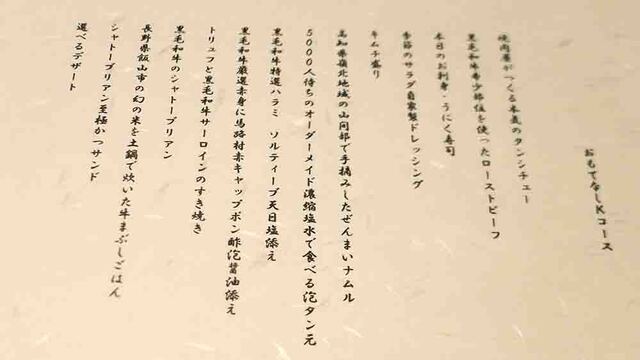 おもてなしKコース
焼肉屋がつくる本気のタンシチュー
黒毛和牛希少部位を使ったローストビーフ
本日のお刺身・うにく寿司
季節のサラダ自家製ドレッシング
キムチ盛り
高知県嶺北地域の山間部で手摘みしたぜんまいナムル
5000人待ちのオーダーメイド濃縮塩水で食べる泡タン元
黒毛和牛特選ハラミ ソルティーブ天日塩添え
黒毛和牛厳選赤身に馬路村赤キャップポン酢泡醤油添え
トリュフと黒毛和牛サーロインのすき焼き
黒毛和牛のシャトーブリアン
長野県飯山市の幻の米を土鍋で炊いた牛まぶしごはん
シャトーブリアン至極かつサンド
選べるデザート